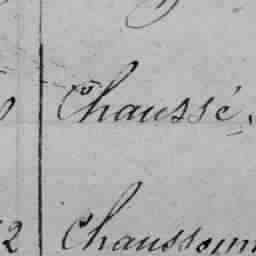 Chaussé.
2 Chausson